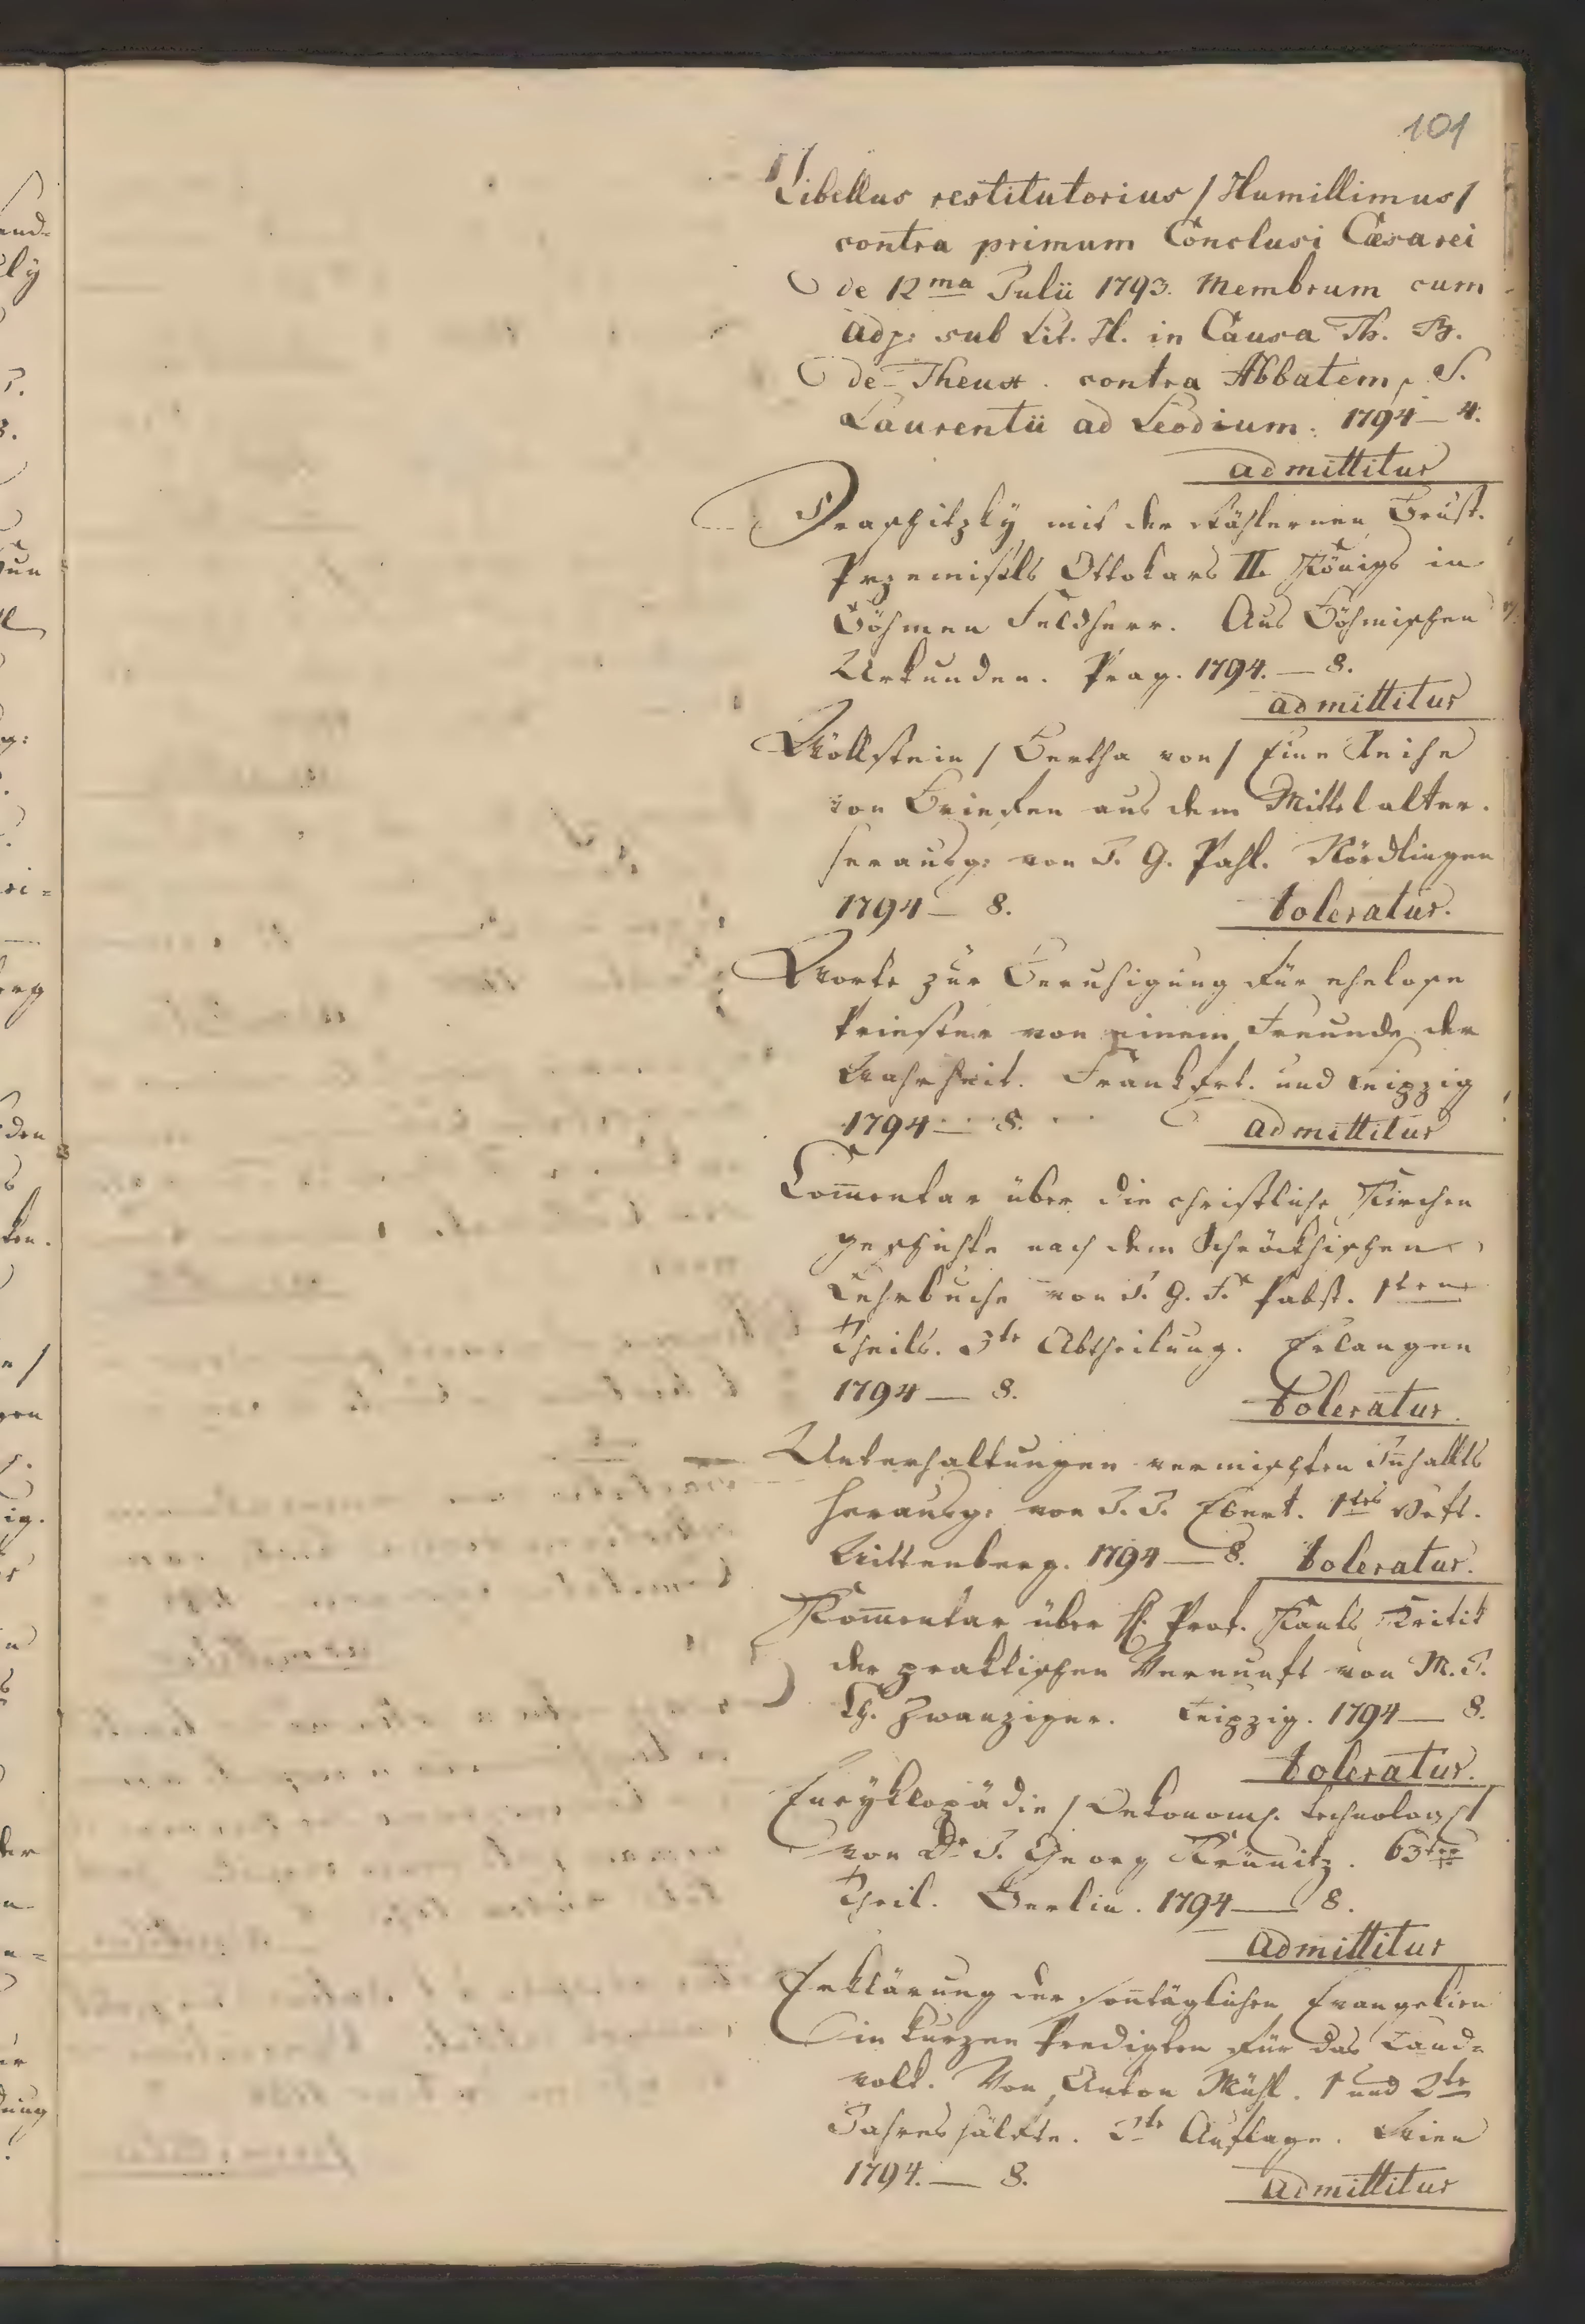 101
Libellus restitutorius / Humillimus /
contra primum Conclusi Cæsarei
de 12ma Julii 1793. Membrum cum
adj: sub Lit. H. in Causa Th. B.
de Theux. contra Abbatem S.
Laurentii ad Leodium. 1794 — 4.
admittitur
Draschitzky mit der stählernen Brust.
Przemisls Ottokars II. Königs in
Böhmen Feldherr. Aus Böhmischen
Urkunden. Prag. 1794. — 8.
admittitur
Wöllstein / Bertha von / Eine Reihe
von Briefen aus dem Mittelalter.
herausg: von J. G. Pahl. Nördlingen
1794 — 8. toleratur.
Worte zur Beruhigung für ehelose
Priester von einem Freunde der
Wahrheit. Frankfrt. und Leipzig
1794 — 8. admittitur
Com̄entar über die christliche Kirchen
geschichte nach dem Schröckhischen
Lehrbuche von J. G. F. Pabst. 1ten
Theils. 3te Abtheilung. Erlangen
1794 — 8. toleratur.
Unterhaltungen vermischten Inhallts
herausg: von J. J. Ebert. 1tes Heft.
Wittenberg. 1794 — 8. toleratur.
Kom̄entar über H. Prof. Kants Kritik
der praktischen Vernunft von M. J.
Ch. Zwanziger. Leipzig. 1794 — 8.
toleratur.
Encyklopädie / Oekonomh. technolog /
von Dr J. Georg Krünitz. 63ter
Theil. Berlin. 1794 — 8.
admittitur
Erklärung der son̄täglichen Evangelien
in kurzen Predigten für das Land=
volk. Von Anton Mühl. 1 und 2te
Jahreshälfte. 2te Auflage. Wien
1794. — 8. admittitur